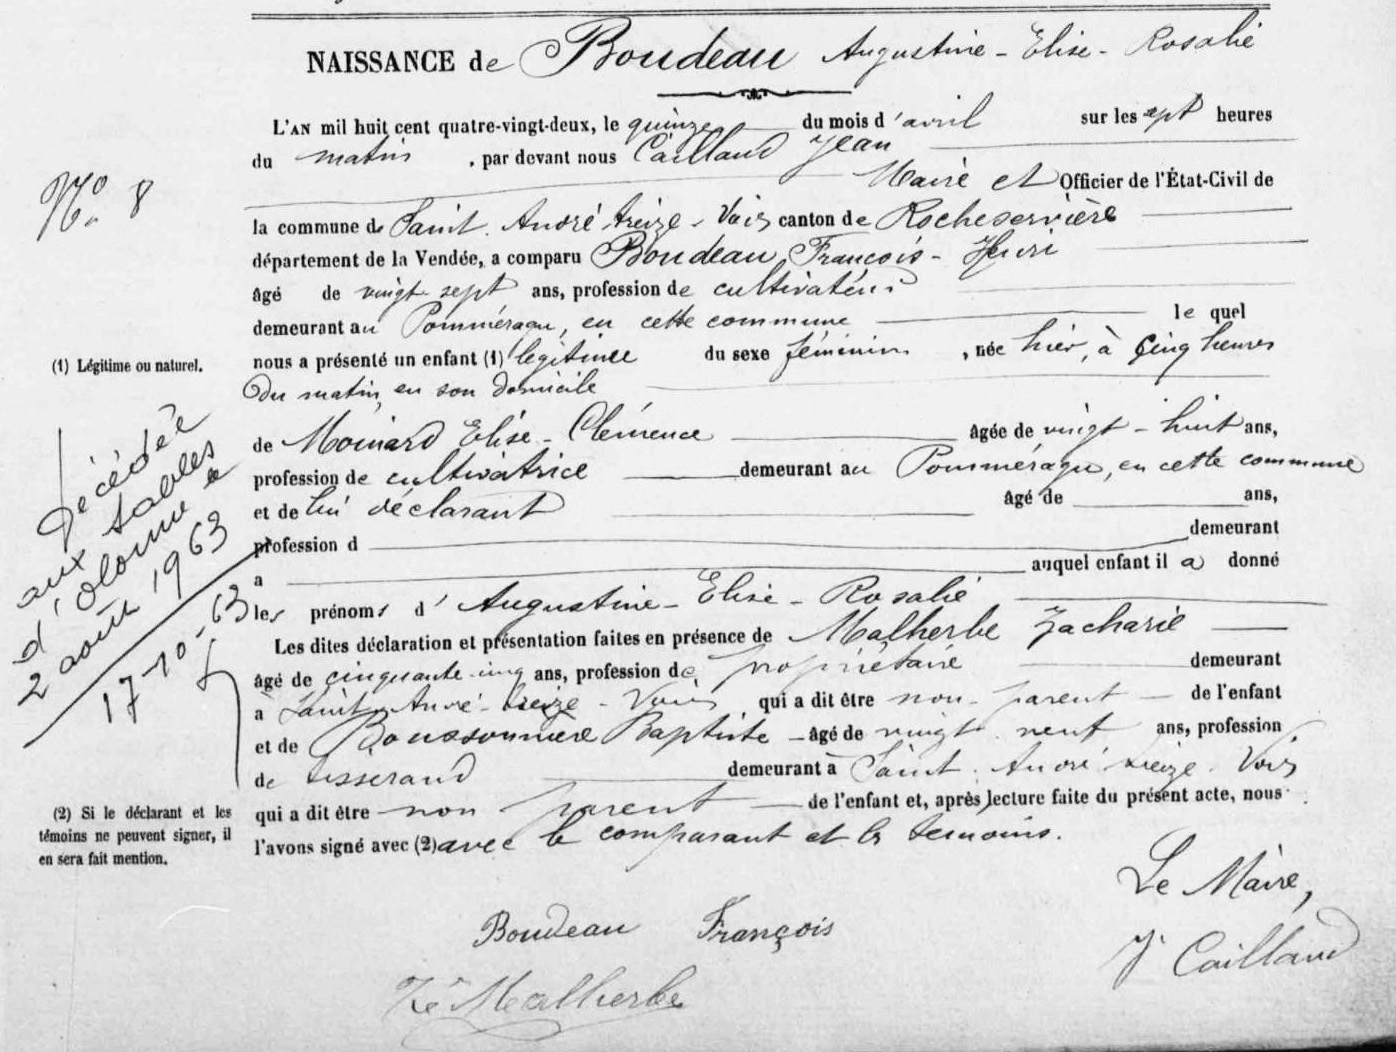 NAISSANCE de Boudeau Augustine - Elise - Rosalie
L'AN mil huit cent quatre-vingt-deux, le quinze du mois d'avril sur les sept heures
du matin, par devant nous Caillaud Jean
Maire et Officier de l'État-Civil de
N° 8
la commune de Saint. André treize - Voies canton de Rocheservière
département de la Vendée, a comparu Boudeau François - Henri
âgé de vingt sept ans, profession de cultivateur
demeurant au Pomméraqu, en cette commune le quel
(1) Légitime ou naturel.
nous a présenté un enfant (1) légitime du sexe féminin, née hier, à cinq heures
du matin, en son domicile
de Moinard Elise - Clémence âgée de vingt - huit ans,
profession de cultivatrice demeurant au Pomméraqu, en cette commune
et de lui déclarant âgé de ans,
profession d demeurant
a auquel enfant il a donné
les prénoms d'Augustine - Elise - Rosalie
décédée
aux Sables
d'Olonne le
2 août 1963
17-10-63
Les dites déclaration et présentation faites en présence de Malherbe Zacharie
âgé de cinquante-cinq ans, profession de propriétaire demeurant
à Saint-André-treize - Voies qui a dit être non - parent de l'enfant
et de Boussonnière Baptiste âgé de vingt neuf ans, profession
de tisserand demeurant à Saint. André. treize. Voies
(2) Si le déclarant et les
témoins ne peuvent signer, il
en sera fait mention.
qui a dit être non parent de l'enfant et, après lecture faite du présent acte, nous
l'avons signé avec (2) avec le comparant et les temoins.
Le Maire,
Boudeau François
J. Caillaud
Malherbe